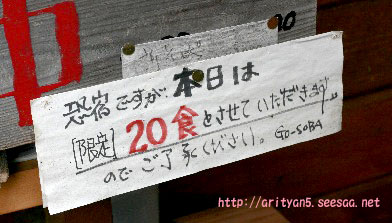 恐縮ですが 本日は
[限定] 20食とさせていただきます
のでご了承ください。 GO-SOBA
http://arityan5.seesaa.net